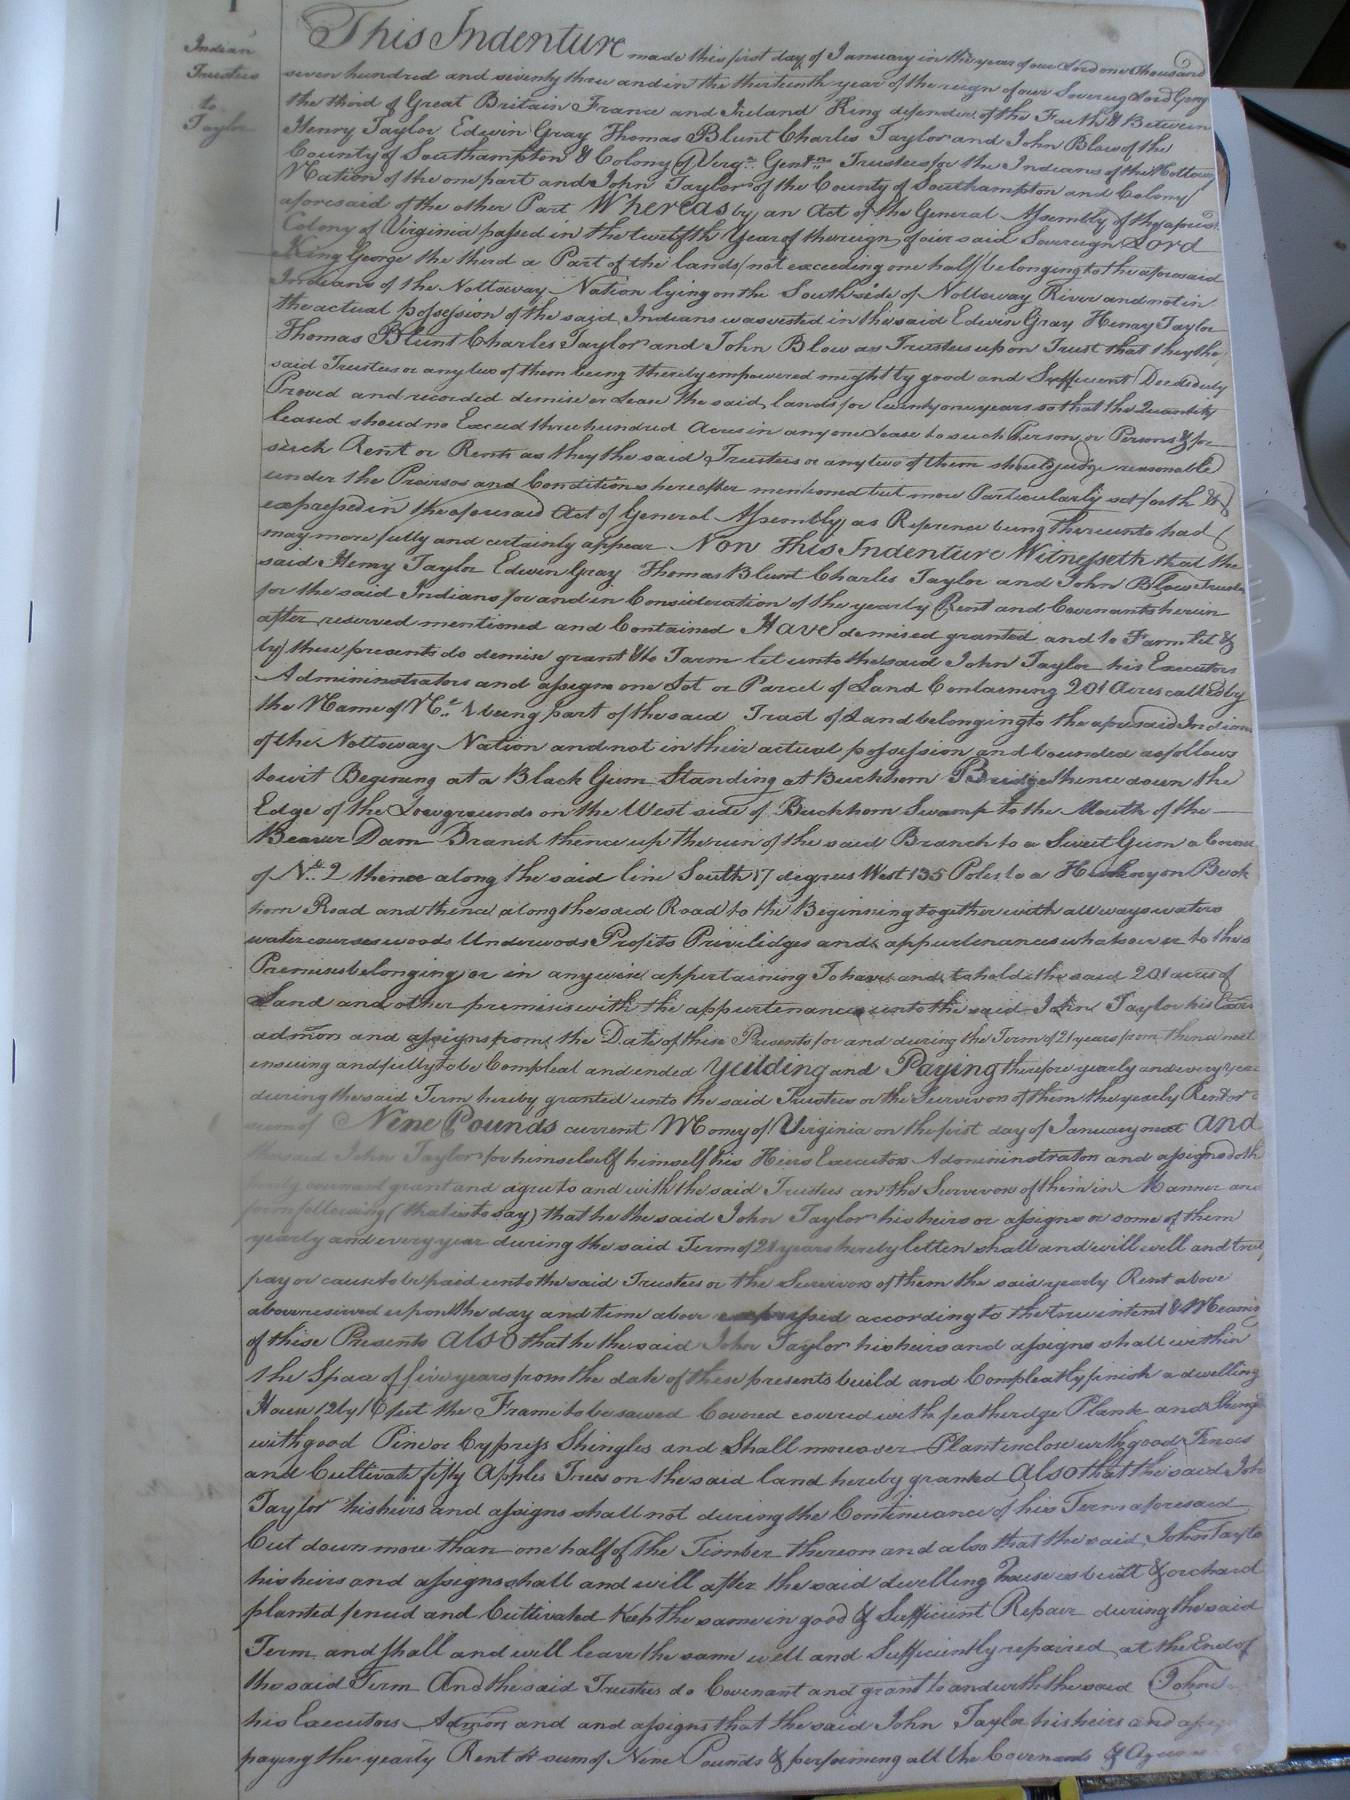 1
Indian
Trustees
to
Taylor
This Indenture made this first day of January in the year of our Lord one thousand
seven hundred and seventy three and in the thirteenth year of the reign of our Sovereign Lord Georg
the third of Great Britain France and Ireland King defender of the Faith &c Between
Henry Taylor Edwin Gray Thomas Blunt Charles Taylor and John Blow of the
County of Southampton & Colony of Virga. Gentn. Trustees for the Indians of the Nottoway
Nation of the one part and John Taylor of the County of Southampton and Colony
aforesaid of the other Part Whereas by an Act of the General Assembly of the aforesd.
Colony of Virginia passed in the twelfth Year of the reign of our said Sovereign Lord
King George the third a Part of the lands (not exceeding one half) belonging to the aforesaid
Indians of the Nottoway Nation lying on the South side of Nottoway River and not in
the actual possession of the said Indians was vested in the said Edwin Gray Henry Taylor
Thomas Blunt Charles Taylor and John Blow as Trustees upon Trust that they the
said Trustees or any two of them being thereby empowered might by good and Sufficient Deeds duly
Proved and recorded demise or Lease the said lands for twenty one years so that the Quantity
leased should no Exceed three hundred Acres in any one Lease to such Person or Persons & for
such Rent or Rents as they the said Trustees or any two of them should judge reasonable
under the Provisos and Conditions hereafter mentioned but more Particularly set forth &
expressed in the aforesaid Act of General Assembly as Reference being thereunto had
may more fully and certainly appear Now this Indenture Witnesseth that the
said Henry Taylor Edwin Gray Thomas Blunt Charles Taylor and John Blow Trustees
for the said Indians for and in Consideration of the yearly Rent and Covenants herein
after reserved mentioned and Contained Have demised granted and to Farm let &
by these presents do demise grant & to Farm let unto the said John Taylor his Executors
Admininistrators and assigns one Lot or Parcel of Land Containing 201 Acres called by
the Name of No. 1 being part of the said Tract of Land belonging to the aforesaid Indians
of the Nottoway Nation and not in their actual possession and bounded as follows
towit Begining at a Black Gum Standing at Buckhorn Bridge thence down the
Edge of the Lowgrounds on the West side of Buckhorn Swamp to the Mouth of the
Beaver Dam Branch thence up the run of the said Branch to a Sweet Gum a Corner
of No. 2 thence along the said line South 17 degrees West 135 Poles to a Hickory on Buck
horn Road and thence along the said Road to the Beginning together with all ways waters
watercourses woods Underwoods Profits Priviledges and appurtenances whatsoever to the s
Premises belonging or in anywise appertaining To have and to hold the said 201 acres of
Land and other premises with the appurtenances unto the said John Taylor his Exors
admors and assigns from the Date of these Presents for and during the Term of 21 years from thence next
ensuing and fully to be Compleat and ended Yeilding and Paying therefore yearly and every year
during the said Term hereby granted unto the said Trustees or the Survivors of them the yearly Rent or
sum of Nine Pounds current Money of Virginia on the first day of January next and
the said John Taylor for himselself himself his Heirs Executors Admininistrators and assigns doth
hereby covenant grant and agree to and with the said Trustees an the Survivors of them in Manner and
form following (that is to say) that he the said John Taylor his heirs or assigns or some of them
yearly and every year during the said Term of 21 years hereby letten shall and will well and truly
pay or cause to be paid unto the said Trustees or the Survivors of them the said yearly Rent above
above reserved upon the day and time above expressed according to the true intent & Meaning
of these Presents Also that he the said John Taylor his heirs and assigns shall within
the Space of five years from the date of these presents build and Compleatly finish a dwelling
House 12 by 16 feet the Frame to be sawed Covered covered with featheredge Plank and Shingd
with good Pine or Cypress Shingles and Shall moreover Plant inclose with good Fences
and Cultivate fifty Apples Trees on the said land hereby granted Also that the said Joh
Taylor his heirs and assigns shall not during the Continuance of his Term aforesaid
Cut down more than one half of the Timber thereon and also that the said John Taylo
his heirs and assigns shall and will after the said dwelling house is built & orchard
planted fenced and Cultivated Kep the same in good & Sufficient Repair during the said
Term and shall and will leave the same well and Sufficiently repaired at the End of
the said Term And the said Trustees do Covenant and grant to and with the said John
his Executors Admors and and assigns that the said John Taylor his heirs and assigns
paying the yearly Rent or sum of Nine Pounds & performing all the Covenants &